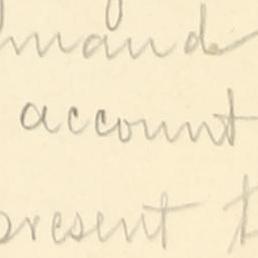 mand
account
present t